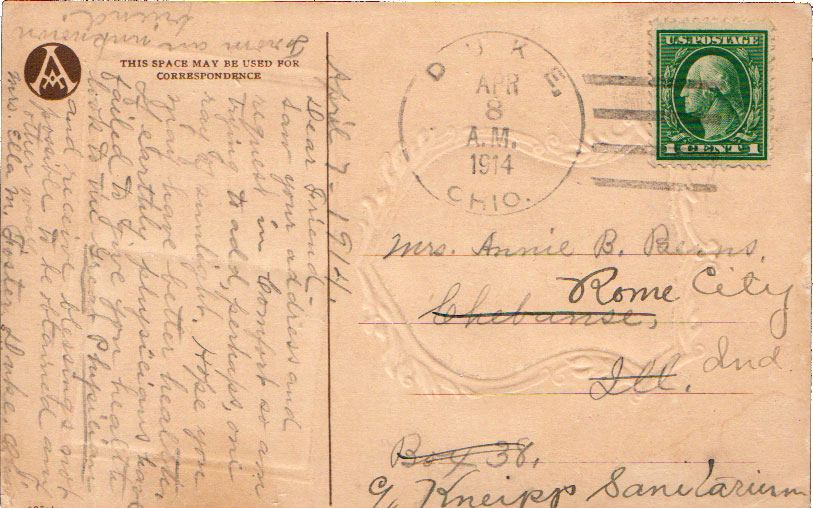 From an unknown
friend.
THIS SPACE MAY BE USED FOR
CORRESPONDENCE
April 7 - 1914.
Dear Friend -
Saw your address and
request in Comfort so am
trying to add, perhaps, one
ray of sunlight. Hope you
may have better health.
If earthly physicians have
failed to give you health
look to the Great Physician
and receive blessings not
possible to be obtained any
other way.
Mrs. Ella M. Foster, Duke,
DUKE,
APR
8
A.M.
1914
OHIO.
U.S. POSTAGE
1 CENT 1
Mrs. Annie B. Beins,
Rome City
Chebanse,
Ill. Ind.
Box 38,
c/o Kneipp Sanitarium